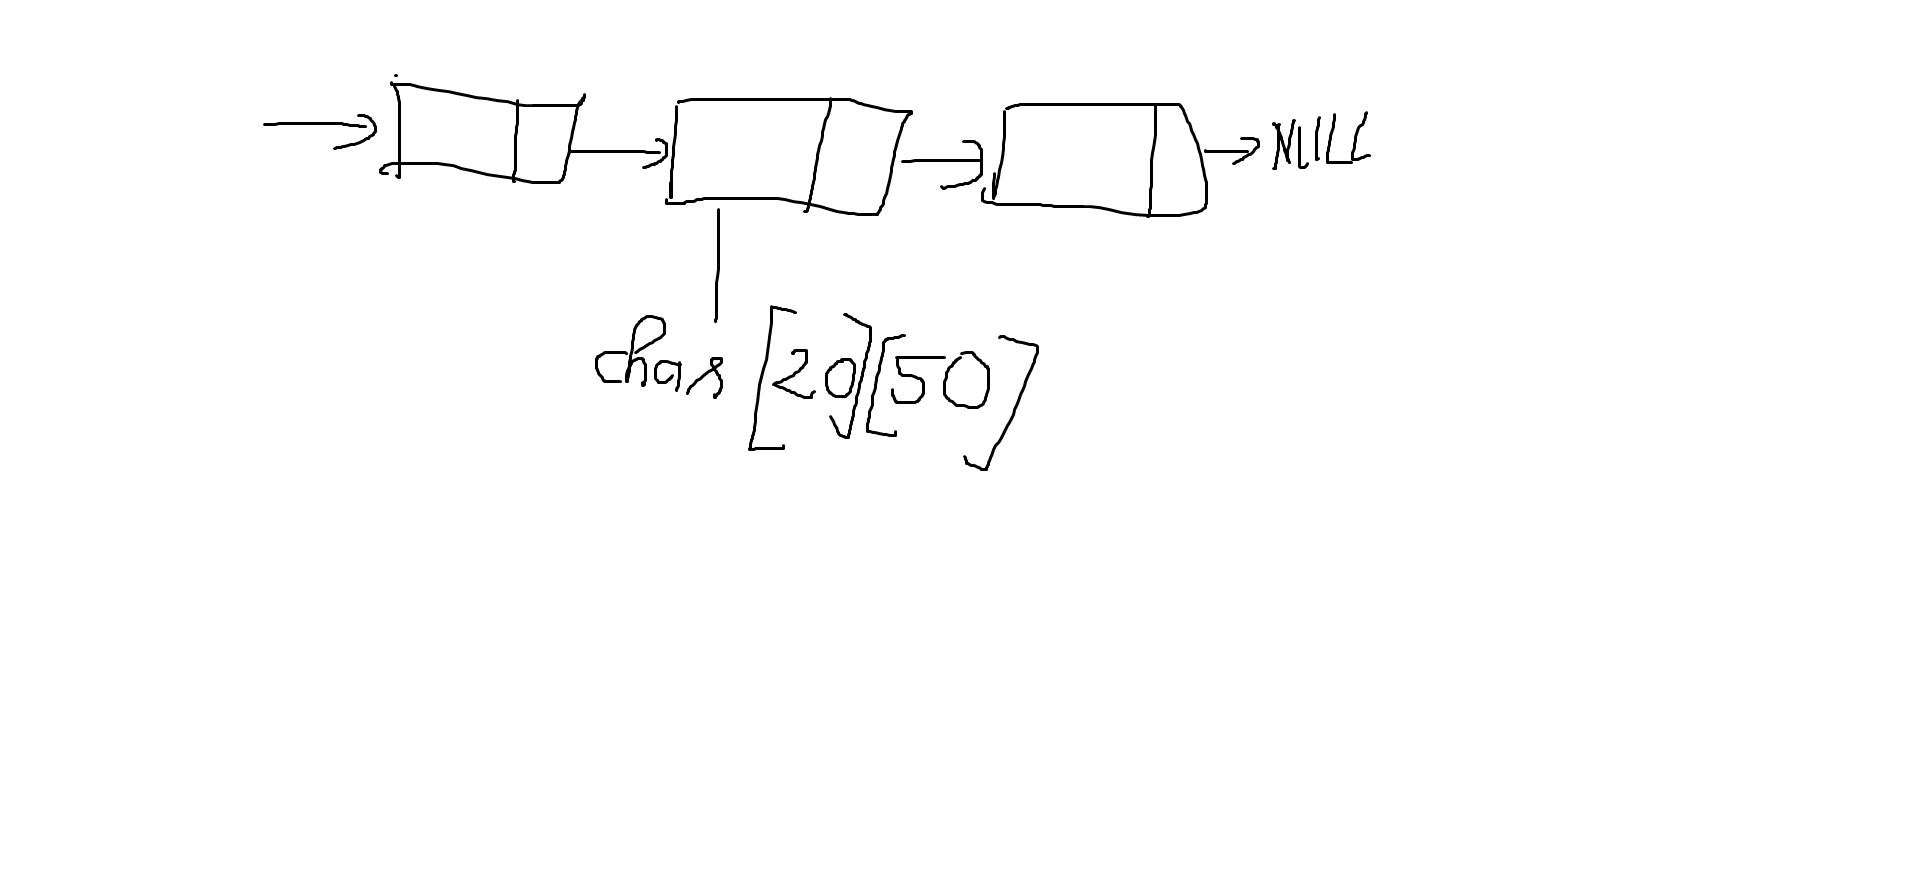 NULL
char [20][50]